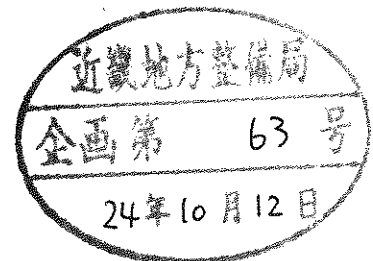 近畿地方整備局
企画第 63 号
24年10月12日